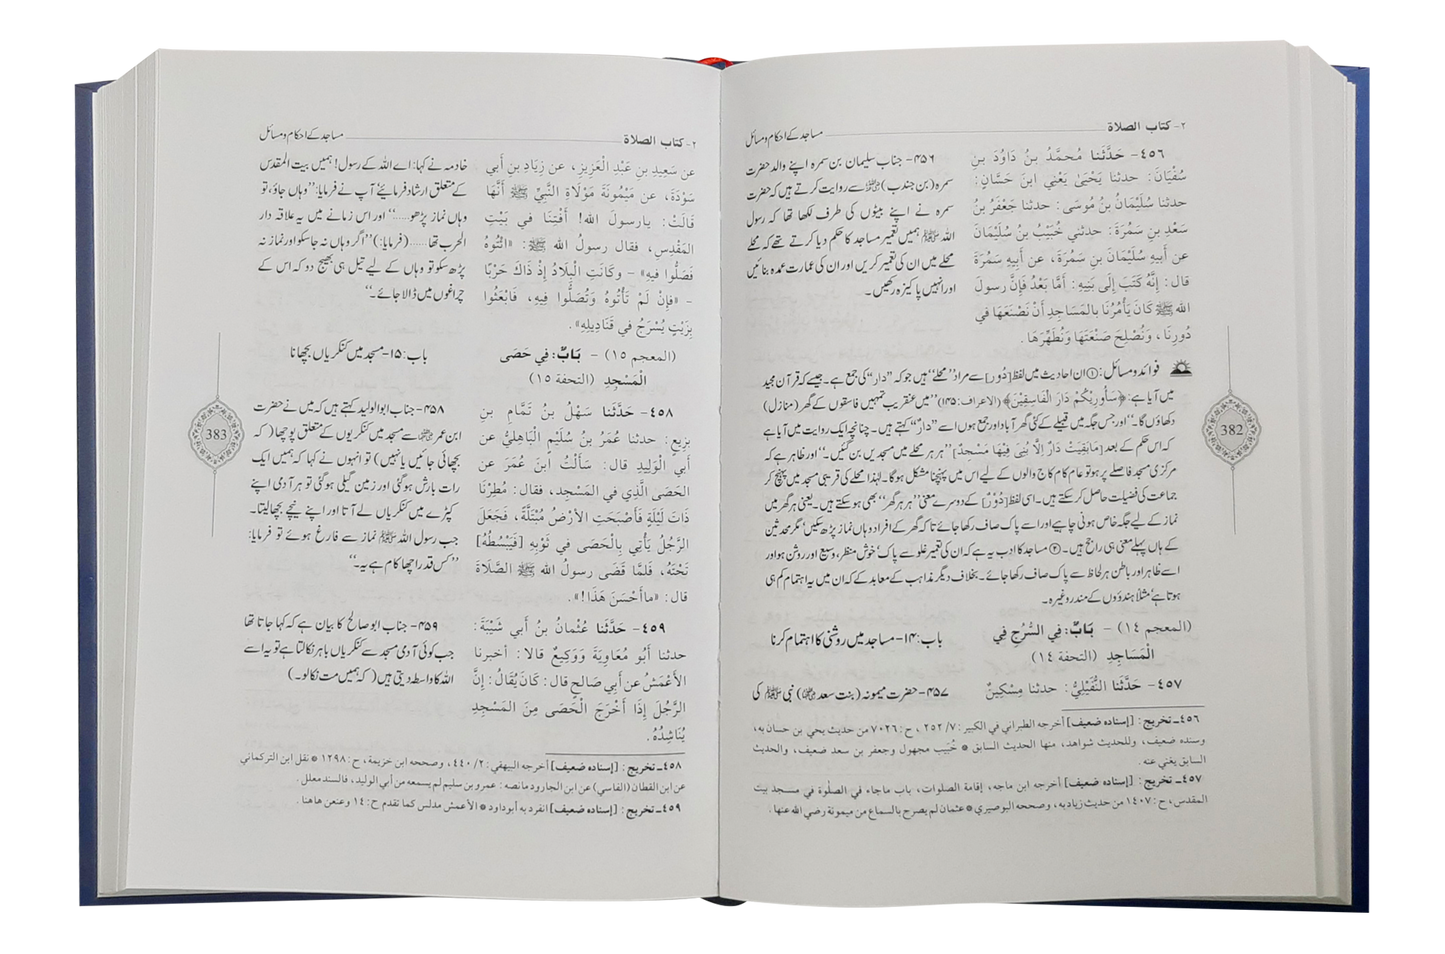 ٢- كتاب الصلاة
مساجد کے احکام و مسائل
٤٥٦- حَدَّثَنَا مُحَمَّدُ بنُ دَاوُدَ بنِ
سُفْيَانَ: حدثنا يَحْيَىٰ يَعْنِي ابنَ حَسَّانٍ:
حدثنا سُلَيْمَانُ بنُ مُوسَى: حدثنا جَعْفَرُ بنُ
سَعْدِ بنِ سَمُرَةَ: حدثني خُبَيْبُ بنُ سُلَيْمَانَ
عن أبِيهِ سُلَيْمَانَ بنِ سَمُرَةَ، عن أبِيهِ سَمُرَةَ
قال: إنَّهُ كَتَبَ إلَى بَنِيهِ: أمَّا بَعْدُ فَإنَّ رسولَ
الله ﷺ كَانَ يَأْمُرُنَا بالمَسَاجِدِ أنْ نَصْنَعَهَا فِي
دُورِنَا، وَنُصْلِحَ صَنْعَتَهَا وَنُطَهِّرَهَا.
۴۵۶- جناب سلیمان بن سمرہ اپنے والد حضرت
سمرہ (بن جندب) رضی اللہ عنہ سے روایت کرتے ہیں کہ حضرت
سمرہ نے اپنے بیٹوں کی طرف لکھا تھا کہ رسول
اللہ ﷺ ہمیں تعمیر مساجد کا حکم دیا کرتے تھے کہ محلے
محلے میں ان کی تعمیر کریں اور ان کی عمارت عمدہ بنائیں
اور انہیں پاکیزہ رکھیں۔
فوائد و مسائل: ① ان احادیث میں لفظ [دُور] سے مراد "محلے" ہیں جو کہ "دار" کی جمع ہے۔ جیسے کہ قرآن مجید
میں آیا ہے: ﴿سَأُورِيكُمْ دَارَ الْفَاسِقِينَ﴾ (الاعراف:۱۴۵) "میں عنقریب تمہیں فاسقوں کے گھر (منازل)
دکھاؤں گا۔" اور جس جگہ میں قبیلے کے کئی گھر آباد اور جمع ہوں اسے "دار" کہتے ہیں۔ چنانچہ ایک روایت میں آیا ہے
کہ اس حکم کے بعد [مَا بَقِيَتْ دَارٌ إِلَّا بُنِيَ فِيهَا مَسْجِدٌ] "ہر ہر محلے میں مسجدیں بن گئیں۔" اور ظاہر ہے کہ
مرکزی مسجد فاصلے پر ہو تو عام کام کاج والوں کے لیے اس میں پہنچنا مشکل ہوگا۔ لہٰذا محلے کی قریبی مسجد میں پہنچ کر
جماعت کی فضیلت حاصل کر سکتے ہیں۔ اسی لفظ [دُوْرٌ] کے دوسرے معنی "ہر ہر گھر" بھی ہو سکتے ہیں۔ یعنی ہر گھر میں
نماز کے لیے جگہ خاص ہونی چاہیے اور اسے پاک صاف رکھا جائے تاکہ گھر کے افراد وہاں نماز پڑھ سکیں' مگر محدثین
کے ہاں پہلے معنی ہی راجح ہیں۔ ② مساجد کا ادب یہ ہے کہ ان کی تعمیر غلو سے پاک' خوش منظر، وسیع اور روشن ہو اور
اسے ظاہر اور باطن ہر لحاظ سے پاک صاف رکھا جائے۔ بخلاف دیگر مذاہب کے معابد کے کہ ان میں یہ اہتمام کم ہی
ہوتا ہے' مثلاً ہندوؤں کے مندر وغیرہ۔
(المعجم ١٤) - بَابٌ: فِي السُّرُجِ فِي
الْمَسَاجِدِ (التحفة ١٤)
باب: ۱۴- مساجد میں روشنی کا اہتمام کرنا
٤٥٧- حَدَّثَنَا النُّفَيْلِيُّ: حدثنا مِسْكِينٌ
۴۵۷- حضرت میمونہ (بنت سعد رضی اللہ عنہا) نبی ﷺ کی
٤٥٦_ تخريج: [إسناده ضعيف] أخرجه الطبراني في الكبير: ٧/ ٢٥٢، ح: ٧٠٢٦ من حديث يحيى بن حسان به،
وسنده ضعيف، وللحديث شواهد، منها الحديث السابق * خُبَيب مجهول وجعفر بن سعد ضعيف، والحديث
السابق يغني عنه.
٤٥٧_ تخريج: [إسناده ضعيف] أخرجه ابن ماجه، إقامة الصلوات، باب ماجاء في الصلوة في مسجد بيت
المقدس، ح: ١٤٠٧ من حديث زياد به، وصححه البوصيري * عثمان لم يصرح بالسماع من ميمونة رضي الله عنها.
382
٢- كتاب الصلاة
مساجد کے احکام و مسائل
عن سَعِيدِ بنِ عَبْدِ الْعَزِيزِ، عن زِيَادِ بنِ أبي
سَوْدَةَ، عن مَيْمُونَةَ مَوْلَاةِ النَّبيِّ ﷺ أَنَّهَا
قَالَتْ: يارسولَ الله! أَفْتِنَا في بَيْتِ
المَقْدِسِ، فقال رسولُ الله ﷺ: «ائْتُوهُ
فَصَلُّوا فيهِ» - وكَانَتِ الْبِلَادُ إذْ ذَاكَ حَرْبًا
- «فإنْ لَمْ تَأْتُوهُ وَتُصَلُّوا فِيهِ، فَابْعَثُوا
بِزَيْتٍ يُسْرَجُ في قَنَادِيلِهِ».
خادمہ نے کہا: اے اللہ کے رسول! ہمیں بیت المقدس
کے متعلق ارشاد فرمائیے' آپ نے فرمایا: "وہاں جاؤ، تو
وہاں نماز پڑھو......" اور اس زمانے میں یہ علاقہ دار
الحرب تھا......(فرمایا:) "اگر وہاں نہ جا سکو اور نماز نہ
پڑھ سکو تو وہاں کے لیے تیل ہی بھیج دو کہ اس کے
چراغوں میں ڈالا جائے۔"
(المعجم ١٥) - بَابٌ: فِي حَصَى
الْمَسْجِدِ (التحفة ١٥)
باب: ۱۵- مسجد میں کنکریاں بچھانا
٤٥٨- حَدَّثَنَا سَهْلُ بنُ تَمَّامِ بنِ
بزِيعٍ: حدثنا عُمَرُ بنُ سُلَيْمٍ الْبَاهِلِيُّ عن
أبي الْوَلِيدِ قال: سَأَلْتُ ابنَ عُمَرَ عن
الحَصَى الَّذِي في المَسْجِدِ، فقال: مُطِرْنَا
ذَاتَ لَيْلَةٍ فَأصْبَحَتِ الأرْضُ مُبْتَلَّةً، فَجَعَلَ
الرَّجُلُ يَأْتِي بِالْحَصَى في ثَوْبِهِ [فَيَبْسُطُهُ]
تَحْتَهُ، فَلمَّا قَضَى رسولُ الله ﷺ الصَّلَاةَ
قال: «ماأحْسَنَ هَذَا!».
۴۵۸- جناب ابو الولید کہتے ہیں کہ میں نے حضرت
ابن عمر رضی اللہ عنہما سے مسجد میں کنکریوں کے متعلق پوچھا (کہ
بچھائی جائیں یا نہیں) تو انہوں نے کہا کہ ہمیں ایک
رات بارش ہوگئی اور زمین گیلی ہوگئی تو ہر آدمی اپنے
کپڑے میں کنکریاں لے آتا اور اپنے نیچے بچھا لیتا۔
جب رسول اللہ ﷺ نماز سے فارغ ہوئے تو فرمایا:
"کس قدر اچھا کام ہے یہ۔"
٤٥٩- حَدَّثَنَا عُثْمانُ بنُ أبي شَيْبَةَ:
حدثنا أبُو مُعَاوِيَةَ وَوَكِيعٌ قالا: أخبرنا
الأعمَشُ عن أبي صَالحٍ قال: كَانَ يُقَالُ: إنَّ
الرَّجُلَ إذَا أخْرَجَ الْحَصَى مِنَ المَسْجِدِ
يُنَاشِدُهُ.
۴۵۹- جناب ابو صالح کا بیان ہے کہ کہا جاتا تھا
جب کوئی آدمی مسجد سے کنکریاں باہر نکالتا ہے تو یہ اسے
اللہ کا واسطہ دیتی ہیں (کہ ہمیں مت نکالو۔)
٤٥٨_ تخريج: [إسناده ضعيف] أخرجه البيهقي: ٢/ ٤٤٠، وصححه ابن خزيمة، ح: ١٢٩٨ * نقل ابن التركماني
عن ابن القطان (الفاسي) عن ابن الجارود مانصه: عمرو بن سليم لم يسمعه من أبي الوليد، فالسند معلل.
٤٥٩_ تخريج: [إسناده ضعيف] انفرد به أبوداود * الأعمش مدلس كما تقدم ح: ١٤ وعنعن هاهنا.
383